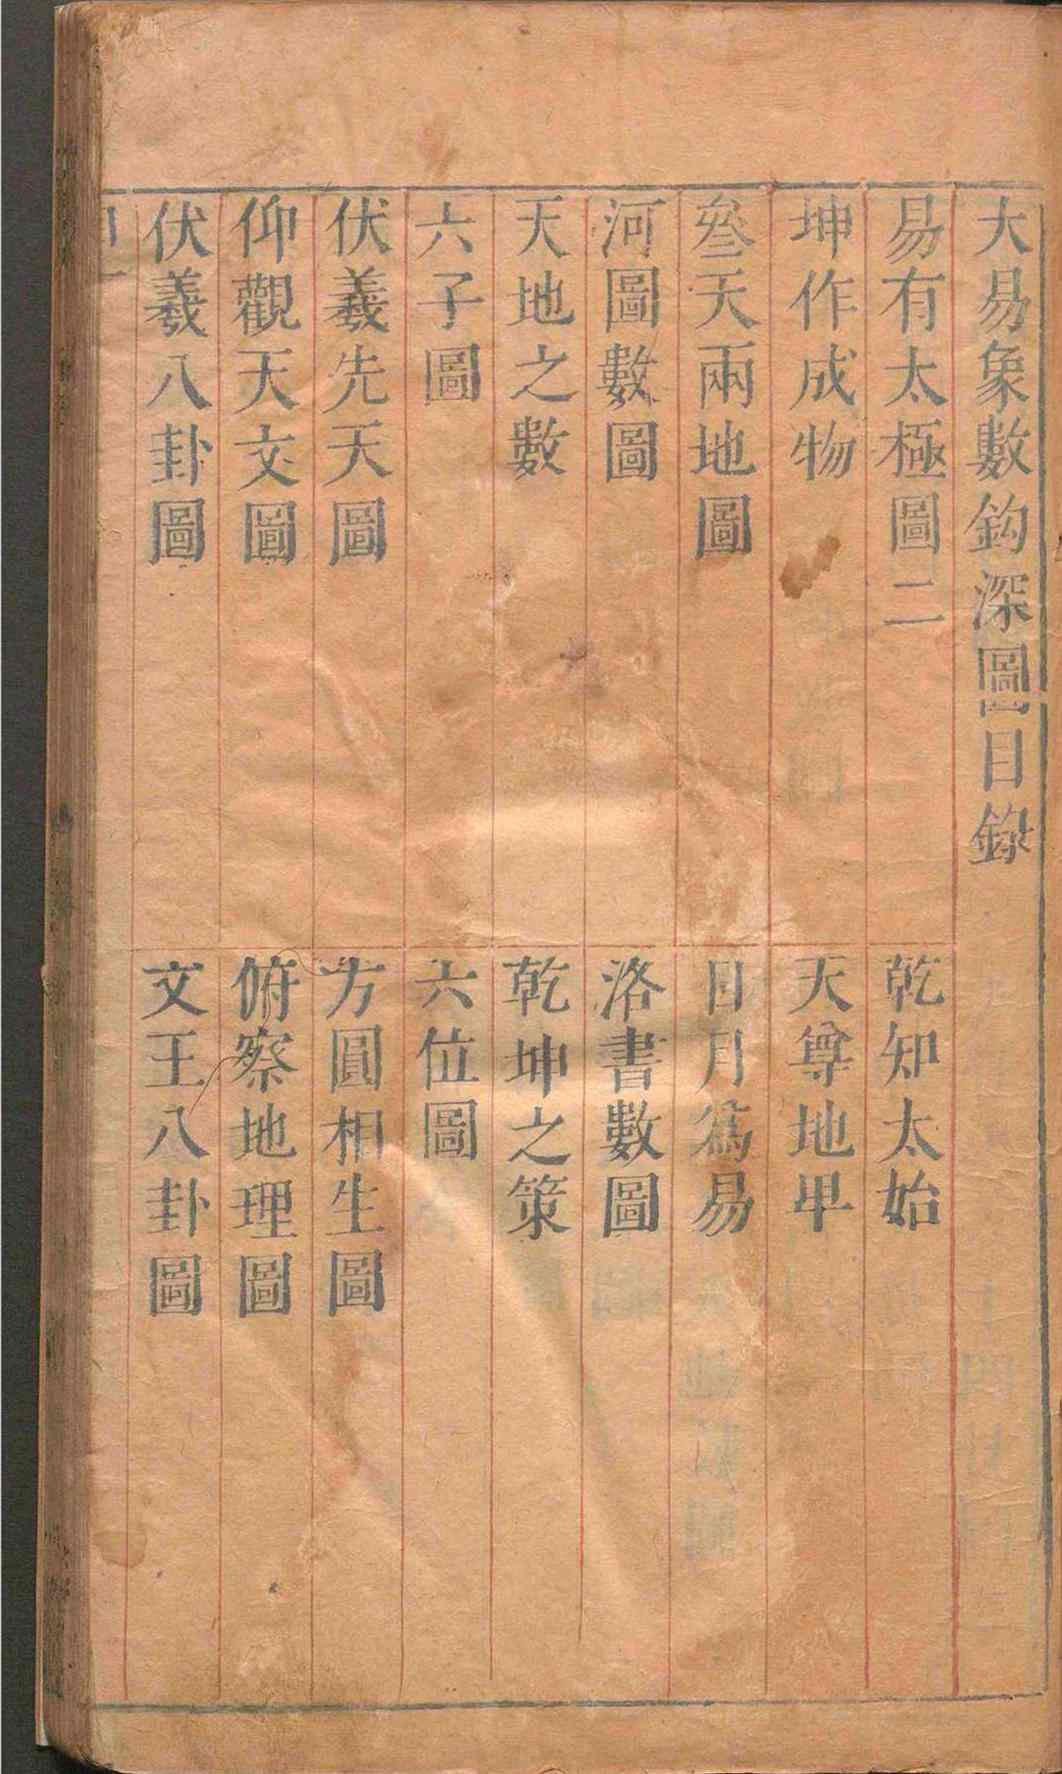 大易象數鈎深圖目錄
易有太極圖二
乾知太始
坤作成物
天尊地卑
叄天兩地圖
日月爲易
河圖數圖
洛書數圖
天地之數
乾坤之策
六子圖
六位圖
伏羲先天圖
方圓相生圖
仰觀天文圖
俯察地理圖
伏羲八卦圖
文王八卦圖